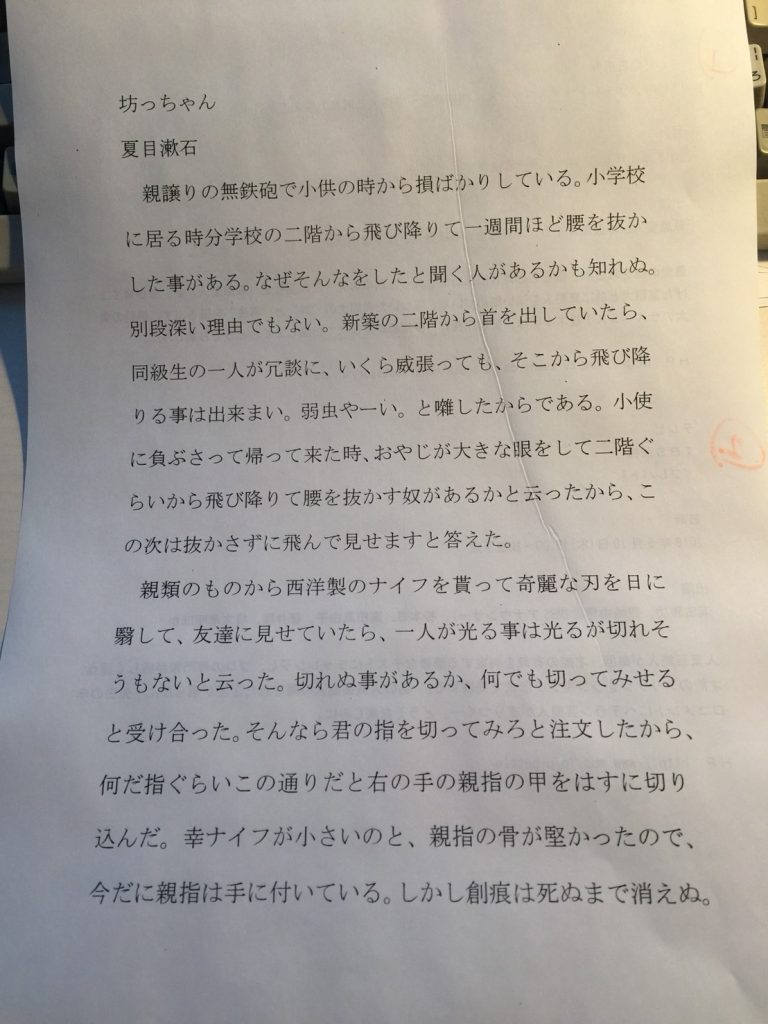 坊っちゃん
夏目漱石
親譲りの無鉄砲で小供の時から損ばかりしている。小学校
に居る時分学校の二階から飛び降りて一週間ほど腰を抜か
した事がある。なぜそんなをしたと聞く人があるかも知れぬ。
別段深い理由でもない。新築の二階から首を出していたら、
同級生の一人が冗談に、いくら威張っても、そこから飛び降
りる事は出来まい。弱虫やーい。と囃したからである。小使
に負ぶさって帰って来た時、おやじが大きな眼をして二階ぐ
らいから飛び降りて腰を抜かす奴があるかと云ったから、こ
の次は抜かさずに飛んで見せますと答えた。
親類のものから西洋製のナイフを貰って奇麗な刃を日に
翳して、友達に見せていたら、一人が光る事は光るが切れそ
うもないと云った。切れぬ事があるか、何でも切ってみせる
と受け合った。そんなら君の指を切ってみろと注文したから、
何だ指ぐらいこの通りだと右の手の親指の甲をはすに切り
込んだ。幸ナイフが小さいのと、親指の骨が堅かったので、
今だに親指は手に付いている。しかし創痕は死ぬまで消えぬ。